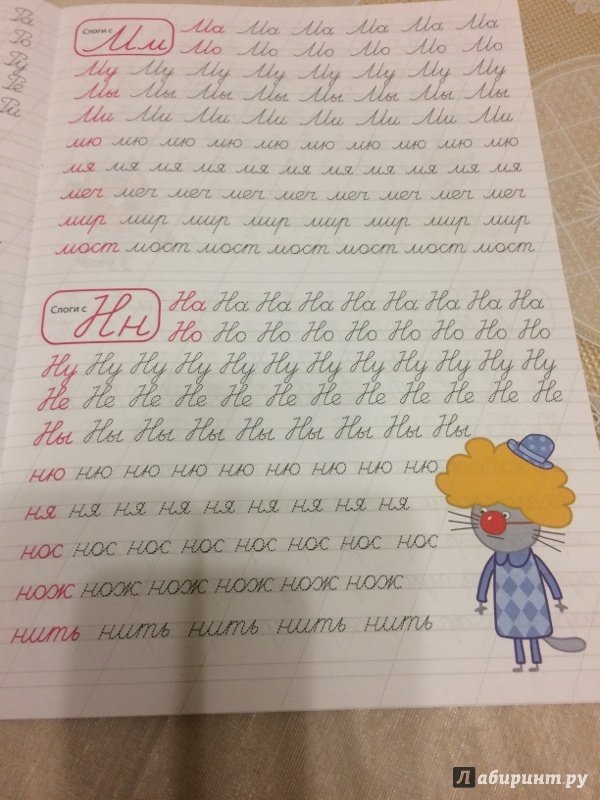 Ра
Ро
Ру
Ре
Ри
Слоги с Мм Ма Ма Ма Ма Ма Ма
Мо Мо Мо Мо Мо Мо
Му Му Му Му Му Му Му Му
Мы Мы Мы Мы Мы Мы Мы Мы
Ми Ми Ми Ми Ми Ми Ми Ми
мю мю мю мю мю мю мю мю мю мю
мя мя мя мя мя мя мя мя мя мя мя
меч меч меч меч меч меч меч меч меч
мир мир мир мир мир мир мир мир
мост мост мост мост мост мост мост
Слоги с Нн На На На На На На На На На
Но Но Но Но Но Но Но Но Но
Ну Ну Ну Ну Ну Ну Ну Ну Ну Ну Ну Ну
Не Не Не Не Не Не Не Не Не Не Не Не
Ны Ны Ны Ны Ны Ны Ны Ны Ны
ню ню ню ню ню ню ню ню ню
ня ня ня ня ня ня ня ня ня
нос нос нос нос нос нос нос нос
нож нож нож нож нож нож
нить нить нить нить нить
Лабиринт.ру